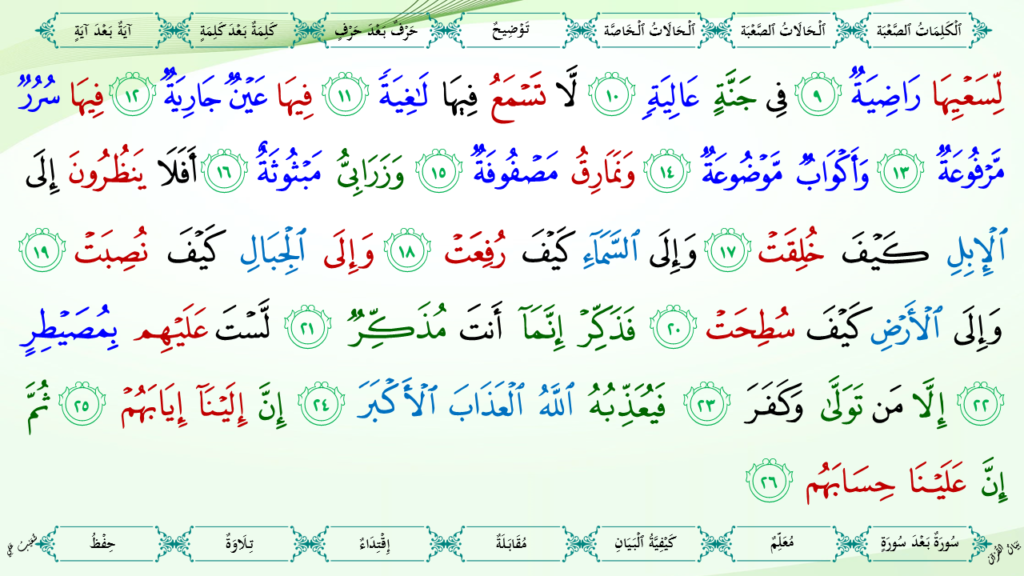 اَلْكَلِمَاتُ الصَّعْبَة اَلْحَالَاتُ الصَّعْبَة اَلْحَالَاتُ الْخَاصَّة تَوْضِيحٌ حَرْفٌ بَعْدَ حَرْفٍ كَلِمَةٌ بَعْدَ كَلِمَةٍ آيَةٌ بَعْدَ آيَةٍ
لِّسَعۡيِهَا رَاضِيَةٌ ٩ فِي جَنَّةٍ عَالِيَةٖ ١٠ لَّا تَسۡمَعُ فِيهَا لَٰغِيَةٗ ١١ فِيهَا عَيۡنٞ جَارِيَةٞ ١٢ فِيهَا سُرُرٞ
مَّرۡفُوعَةٞ ١٣ وَأَكۡوَابٞ مَّوۡضُوعَةٞ ١٤ وَنَمَارِقُ مَصۡفُوفَةٞ ١٥ وَزَرَابِيُّ مَبۡثُوثَةٌ ١٦ أَفَلَا يَنظُرُونَ إِلَى
ٱلۡإِبِلِ كَيۡفَ خُلِقَتۡ ١٧ وَإِلَى ٱلسَّمَآءِ كَيۡفَ رُفِعَتۡ ١٨ وَإِلَى ٱلۡجِبَالِ كَيۡفَ نُصِبَتۡ ١٩
وَإِلَى ٱلۡأَرۡضِ كَيۡفَ سُطِحَتۡ ٢٠ فَذَكِّرۡ إِنَّمَآ أَنتَ مُذَكِّرٞ ٢١ لَّسۡتَ عَلَيۡهِم بِمُصَيۡطِرٍ
٢٢ إِلَّا مَن تَوَلَّىٰ وَكَفَرَ ٢٣ فَيُعَذِّبُهُ ٱللَّهُ ٱلۡعَذَابَ ٱلۡأَكۡبَرَ ٢٤ إِنَّ إِلَيۡنَآ إِيَابَهُمۡ ٢٥ ثُمَّ
إِنَّ عَلَيۡنَا حِسَابَهُم ٢٦
بَيَانُ القُرْآن سُورَةٌ بَعْدَ سُورَةٍ مُعَلِّمٌ كَيْفِيَّةُ الْبَيَانِ مُقَابَلَةٌ إِقْتِدَاءٌ تِلَاوَةٌ حِفْظٌ